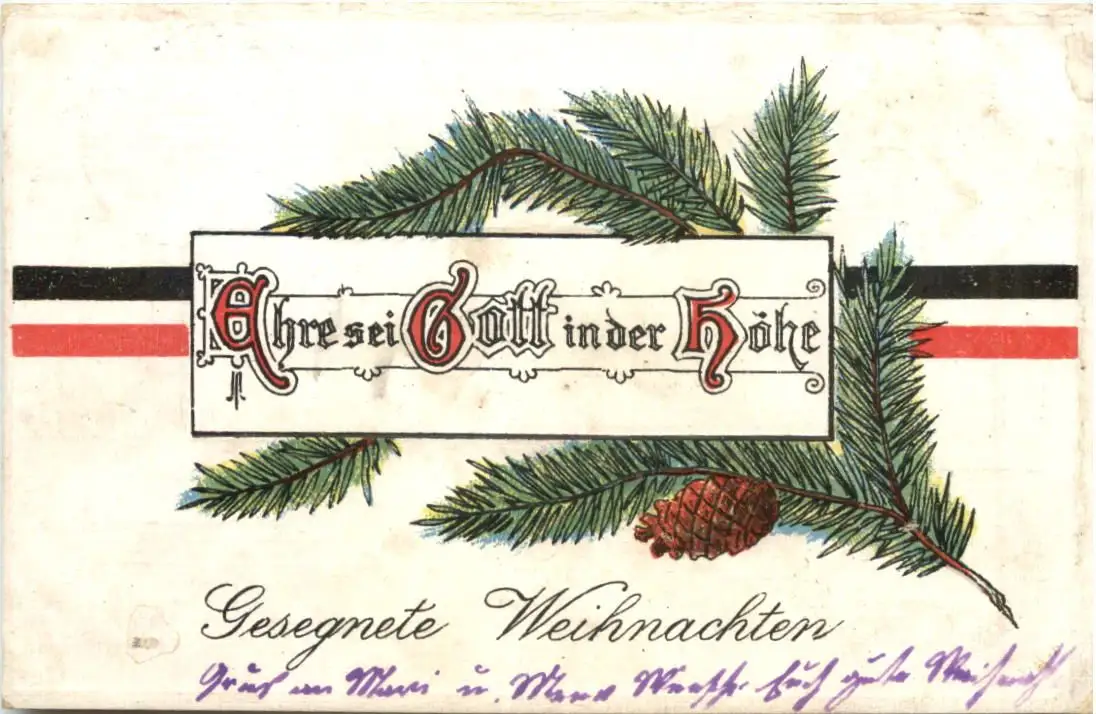 Ehre sei Gott in der Höhe
Gesegnete Weihnachten
Gruß an Mari u. Euch gute Weihnacht